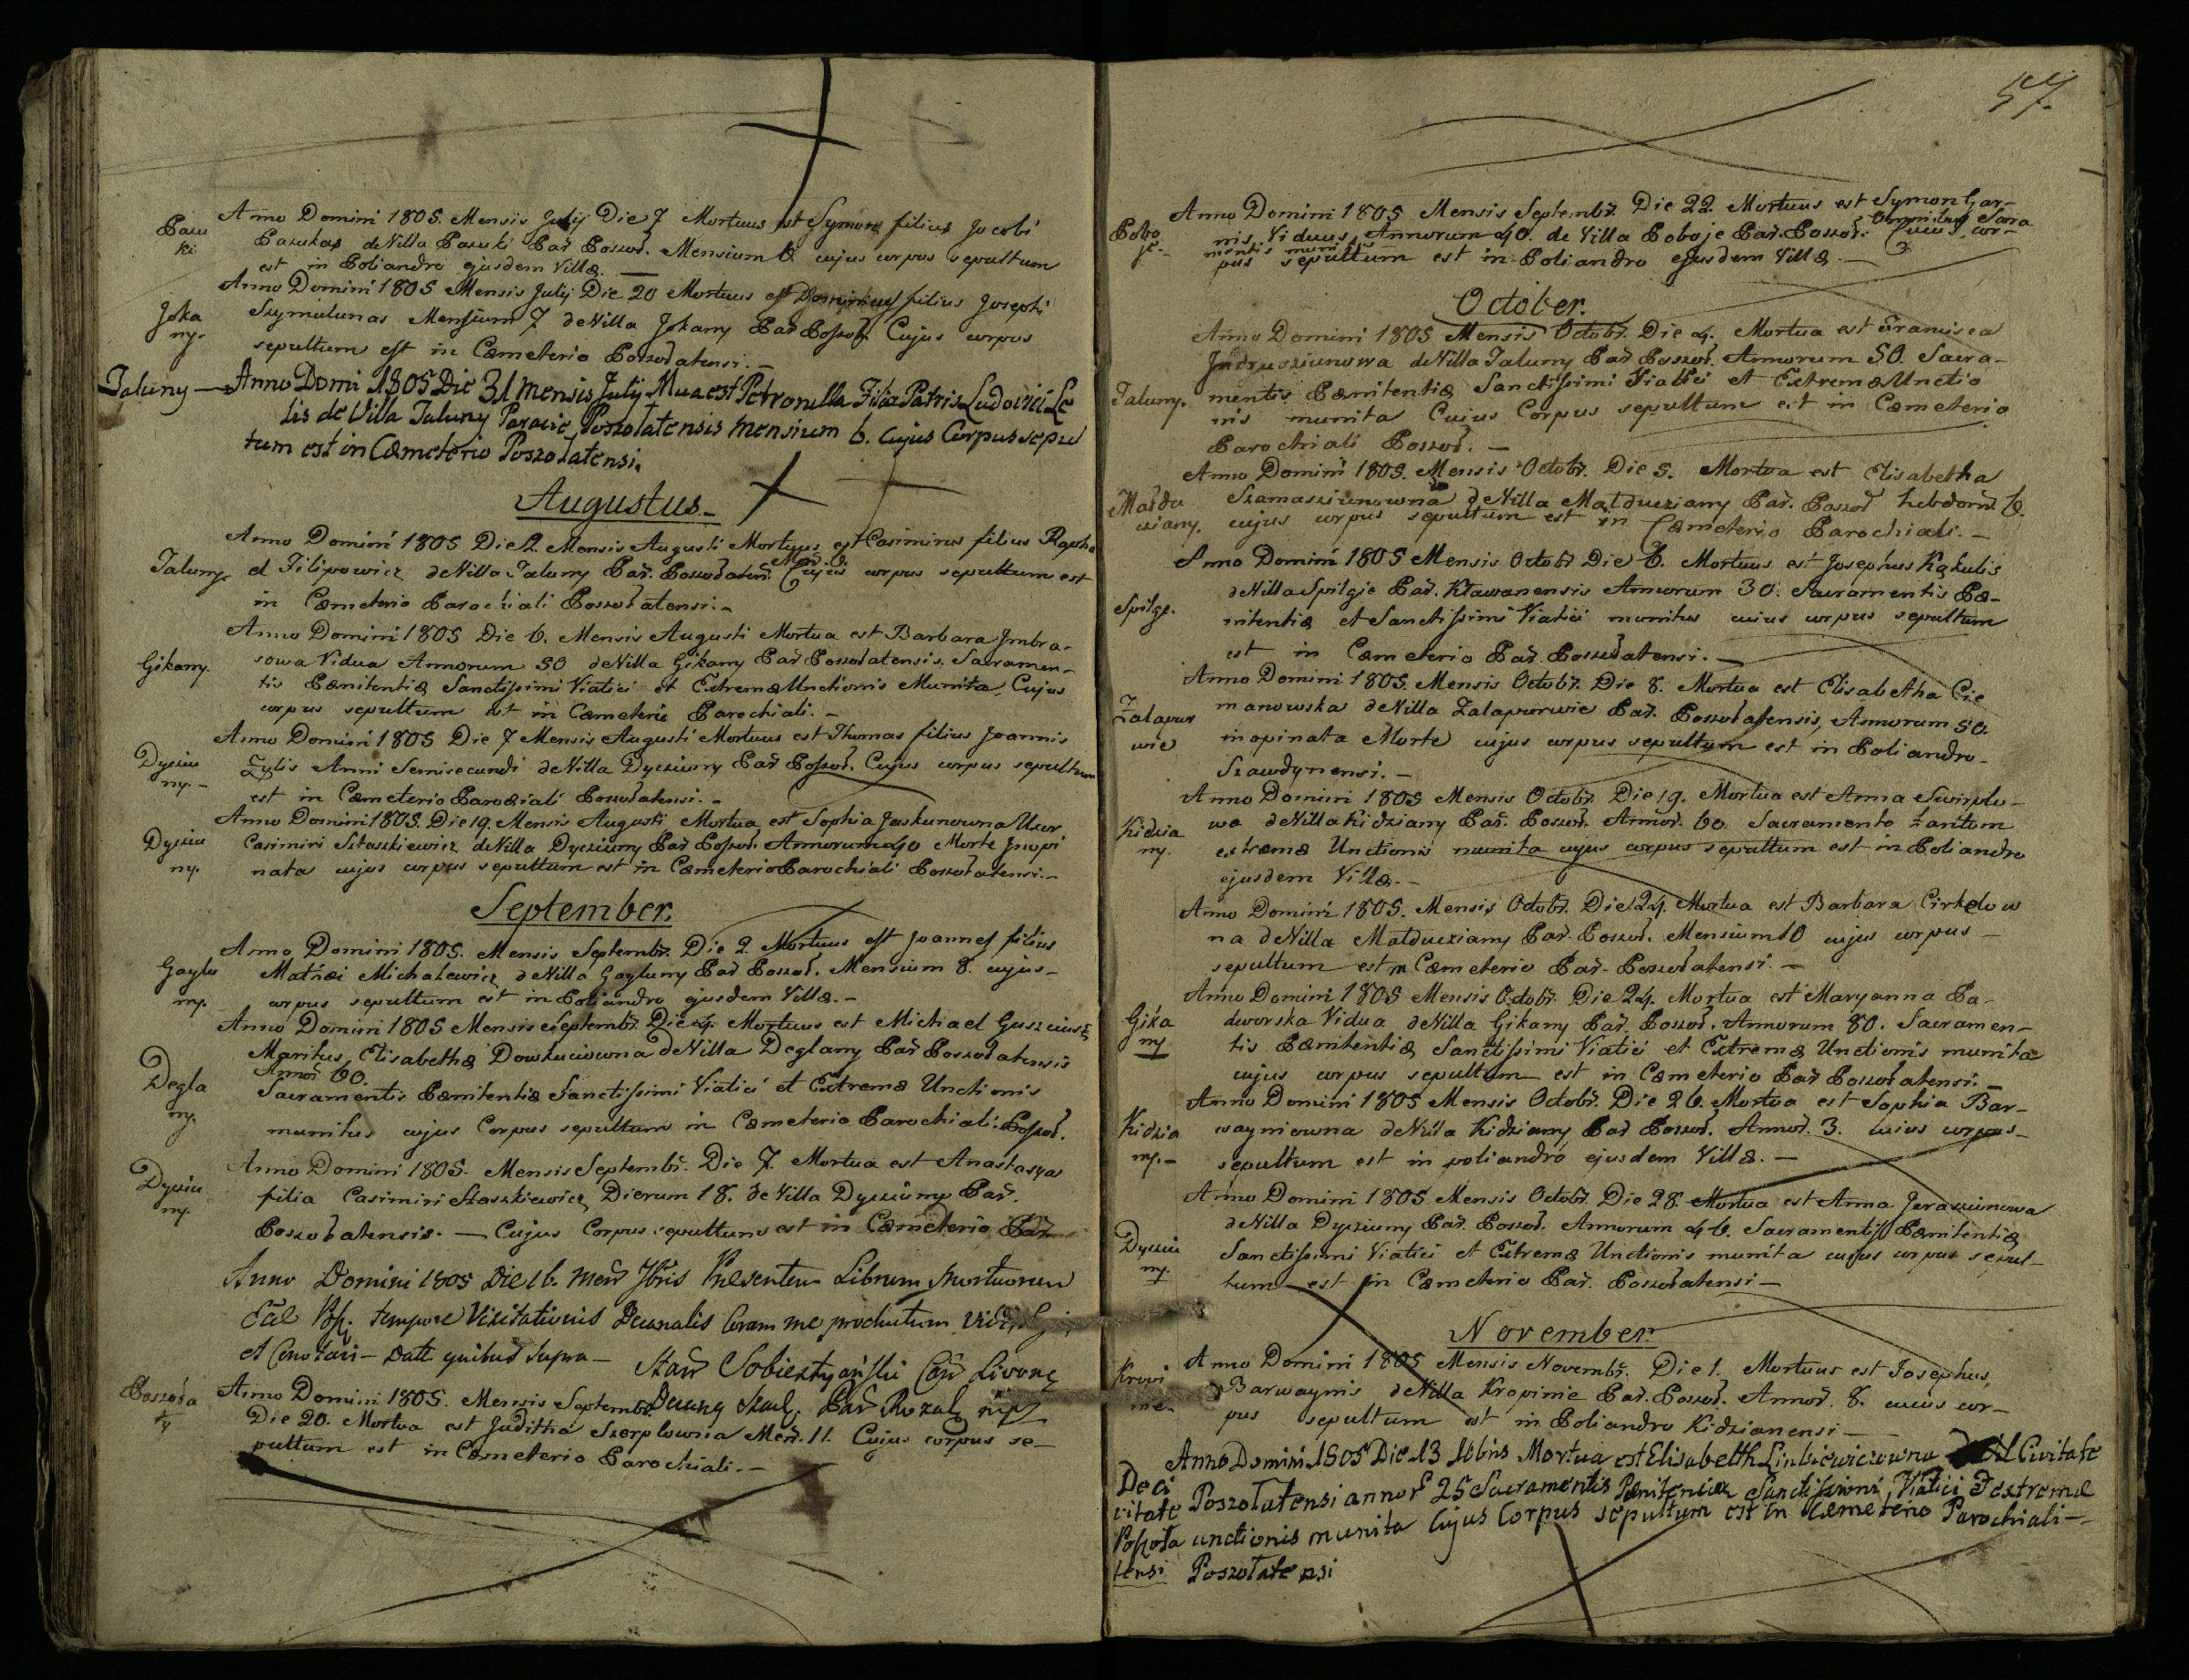 Pasu
ki
Anno Domini 1805. Mensis Julij Die 7 Mortuus est Symon filius Jacobi
Pasukas de Villa Pasuki Par̃ Poszoł. Mensium 6 cujus corpus sepultum
est in Poliandro ejusdem Villæ. —
Joka
ny.
Anno Domini 1805 Mensis Julij Die 20 Mortuus est filius Josephi
Szymulunas Mensium 7 de Villa Jokany Par̃ Poszoł. Cujus corpus
sepultum est in Cæmeterio Poszołatensi. —
Taluny — Anno Domi 1805 Die 31 Mensis Julij Mua est Petronella Filia Patris Ludovici Le
lis de Villa Taluny Paraciæ Poszołatensis Mensium 6. Cujus Corpus sepul
tum est in Cæmeterio Poszołatensi.
Augustus.
Taluny.
Anno Domini 1805 Die 2. Mensis Augusti Mortuus est Casimirus filius Rapha
el Filipowicz de Villa Taluny Par̃. Poszołaten̄. Cujus corpus sepultum est
in Cæmeterio Parochiali Poszołatensi. —
Gikany.
Anno Domini 1805 Die 6. Mensis Augusti Mortua est Barbara Jmbra-
sowa Vidua Annorum 50 de Villa Gikany Par̃ Poszołatensis. Sacramen-
tis Pænitentiæ Sanctissimi Viatici et Extremæ Unctionis Munita. Cujus
corpus sepultum est in Cæmeterio Parochiali. —
Dycziu
ny. —
Anno Domini 1805 Die 7 Mensis Augusti Mortuus est Thomas filius Joannis
Zylis Anni Semisecundi de Villa Dycziuny Par̃ Poszoł. Cujus corpus sepultum
est in Cæmeterio Parociali Poszołatensi. —
Dycziu
ny.
Anno Domini 1805. Die 19. Mensis Augusti Mortua est Sophia Jaskunowna Uxor
Casimiri Staszkiewicz de Villa Dycziuny Par̃ Poszoł. Annorum 40 Morte Jnopi
nata cujus corpus sepultum est in Cæmeterio Parochiali Poszołatensi. —
September.
Gaylu
ny.
Anno Domini 1805. Mensis Septembr̃. Die 2 Mortuus est Joannes filius
Mathæi Michalewicz de Villa Gayluny Par̃ Poszoł. Mensium 8. cujus —
corpus sepultum est in Poliandro ejusdem Villæ. —
Degla
ny.
Anno Domini 1805 Mensis Septembr̃. Die 4. Mortuus est Michael
Maritus Elisabethæ de Villa Deglany Par̃ Poszołatensis
Annor̃ 60.
Sacramentis Pænitentiæ Sanctissimi Viatici et Extremæ Unctionis
munitus cujus Corpus sepultum in Cæmeterio Parochiali Poszoł.
Dycziu
ny.
Anno Domini 1805. Mensis Septembr̃. Die 7. Mortua est Anastasya
filia Casimiri Staszkiewicz Dierum 18. de Villa Dycziuny Par̃.
Poszołatensis. — Cujus Corpus sepultum est in Cæmeterio Par̃
Anno Domini 1805 Die 16. Men̄ 7bris Præsentem Librum Mortuorum
tempore Visitationis Decanalis Coram me productum
et — Datt quibus supra —
Poszoła
ty
Anno Domini 1805. Mensis Septembr̃.
Die 20. Mortua est Juditha Szorplowna Men̄. 11. Cujus corpus se-
pultum est in Cæmeterio Parochiali. —
57.
Pobo
je. -
Anno Domini 1805 Mensis Septembr̃. Die 22. Mortuus est Symon Gar-
nis, Viduus, Annorum 40. de Villa Poboje Par̃. Poszoł. Omnibus Sacra
mentis munitus Cuius cor-
pus sepultum est in Poliandro ejusdem Villæ. —
October.
Taluny.
Anno Domini 1805 Mensis Octobr̃. Die 4. Mortua est Francisca
Jndrusziunowa de Villa Taluny Par̃ Poszoł. Annorum 50. Sacra-
mentis Pænitentiæ Sanctissimi Viatici et Extremæ Unctio
nis munita Cujus Corpus sepultum est in Cæmeterio
Parochiali Poszoł. —
Małdu
cziany.
Anno Domini 1805. Mensis Octobr̃. Die 5. Mortua est Elisabetha
Szamasziunowna de Villa Małducziany Par̃. Poszoł hebdom̄. 6.
cujus corpus sepultum est in Cæmeterio Parochiali. —
Spilge.
Anno Domini 1805 Mensis Octobr̃ Die 6. Mortuus est Josephus Kąkulis
de Villa Spilgie Par̃. Kławanensis Annorum 30. Sacramentis Pæ-
nitentiæ et Sanctissimi Viatici munitus cuius corpus sepultum
est in Cæmeterio Par̃. Poszołatensi. —
Zalapur
wie
Anno Domini 1805. Mensis Octobr̃. Die 8. Mortua est Elisabetha Cie
manowska de Villa Zalapurwie Par̃. Poszołatensis, Annorum 50.
inopinata Morte cujus corpus sepultum est in Poliandro
Szawdynensi. —
Kidzia
ny.
Anno Domini 1805 Mensis Octobr̃. Die 19. Mortua est Anna
wa de Villa Kidziany Par̃. Poszoł. Annor̃. 60. Sacramento tantum
extremæ Unctionis munita cujus corpus sepultum est in Poliandro
ejusdem Villæ. —
Anno Domini 1805. Mensis Octobr̃. Die 24. Mortua est Barbara Cirkelow
na de Villa Małducziany Par̃. Poszoł. Mensium 10 cujus corpus —
sepultum est in Cæmeterio Par̃. Poszołatensi. —
Gika
ny
Anno Domini 1805 Mensis Octobr̃. Die 24. Mortua est Maryanna Pa-
dworska Vidua de Villa Gikany Par̃. Poszoł. Annorum 80. Sacramen-
tis Pænitentiæ Sanctissimi Viatici et Extremæ Unctionis munita
cujus corpus sepultum est in Cæmeterio Par̃ Poszołatensi. —
Kidzia
ny. —
Anno Domini 1805 Mensis Octobr̃. Die 26. Mortua est Sophia Bar-
wayniowna de Villa Kidziany Par̃ Poszoł. Annor̃. 3. cuius corpus —
sepultum est in poliandro ejusdem Villæ. —
Dycziu
ny.
Anno Domini 1805 Mensis Octobr̃. Die 28. Mortua est Anna Jerasziunowa
de Villa Dycziuny Par̃. Poszoł. Annorum 46. Sacramentis Pænitentiæ
Sanctissimi Viatici et Extremæ Unctionis munita cujus corpus sepul-
tum est in Cæmeterio Par̃. Poszołatensi —
November.
Kropi
nie.
Anno Domini 1805 Mensis Novembr̃. Die 1. Mortuus est Josephus,
Barwaynis de Villa Kropinie Par̃. Poszoł. Annor̃. 8. cuius cor-
pus sepultum est in Poliandro Kidzianensi —
De ci
vitate
Poszoła
tensi
Anno Domini 1805 Die 13 Mortua est Elisabetth Linkiewiczowna Civitate
Poszołatensi annor̃ 25 Sacramentis Pænitenciæ Sanctissimi Viatici Extremæ
unctionis munita Cujus Corpus sepultum est in Cæmeterio Parochiali —
Poszołatensi